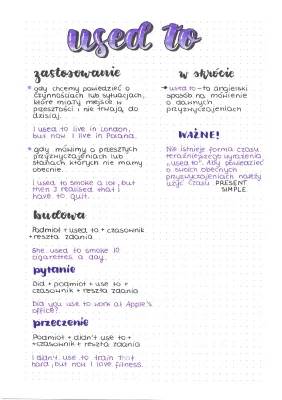 used to
zastosowanie
gdy chcemy powiedzieć o
czynnościach lub sytuacjach,
które miały miejsce w
przeszłości i nie trwają do
dzisiaj.
I used to live in London,
but now I live in Poland.
gdy mówimy o przeszłych
przyzwyczajeniach lub
stanach których nie mamy
obecnie.
I used to smoke a lot, but
then I realised that I
have to quit.
budowa
Podmiot + used to + czasownik
+ reszta zdania
She used to smoke 10
cigarettes a day.
pytanie
Did + podmiot + use to +
czasownik + reszta zdania
Did you use to work at Apple's
office?
przeczenie
Podmiot + didn't use to +
+ czasownik + reszta zdania
I didn't use to train that
hard, but now I love fitness.
w skrócie
→ used to - to angielski
sposób na mówienie
o dawnych
przyzwyczajeniach
WAŻNE!
Nie istnieje forma czasu
teraźniejszego wyrażenia
"used to". Aby powiedzieć
o swoich obecnych
przyzwyczajeniach należy
użyć czasu PRESENT
SIMPLE